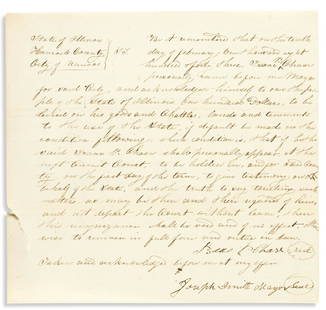 State of Illinois
Hancock County SS.
City of Nauvoo
Be it remembered that on the tenth
day of February, One thousand eight
hundred forty three Isaac Chase
personally came before me Mayor
for said City, and acknowledged himself to owe the peo-
ple of the State of Illinois One hundred Dollars, to be
levied on his goods and Chattles, Lands and tenements
to the use of the State, if default be made in the
condition following. The condition, that if he
said Isaac Chase shall personally appear at the
next Circuit Court to be holden in and for said Coun-
ty on the first day of the term, to give testimony on be
half of the State, and the truth to say touching such
matters as may be then and there required of him,
and not depart the Court without leave, then
this recognizance shall be void and of no effect otherwise
to remain in full force and virtue in law.
Chase Seal
Taken and acknowledged before me at my office
Joseph Smith Mayor Seal